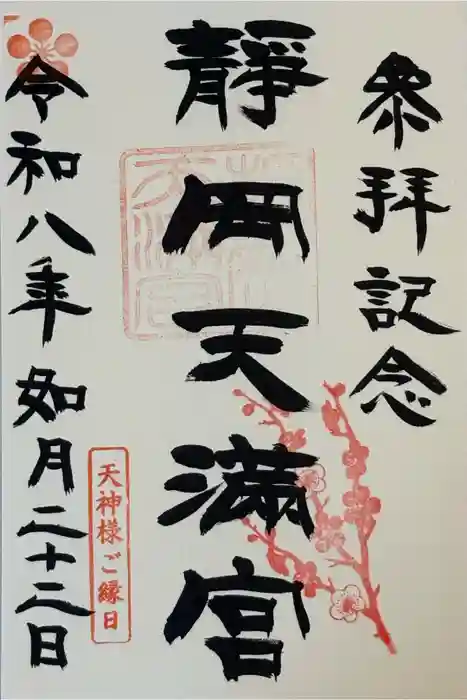 參拜記念
靜岡天満宮
令和八年如月二十二日
天神様ご縁日